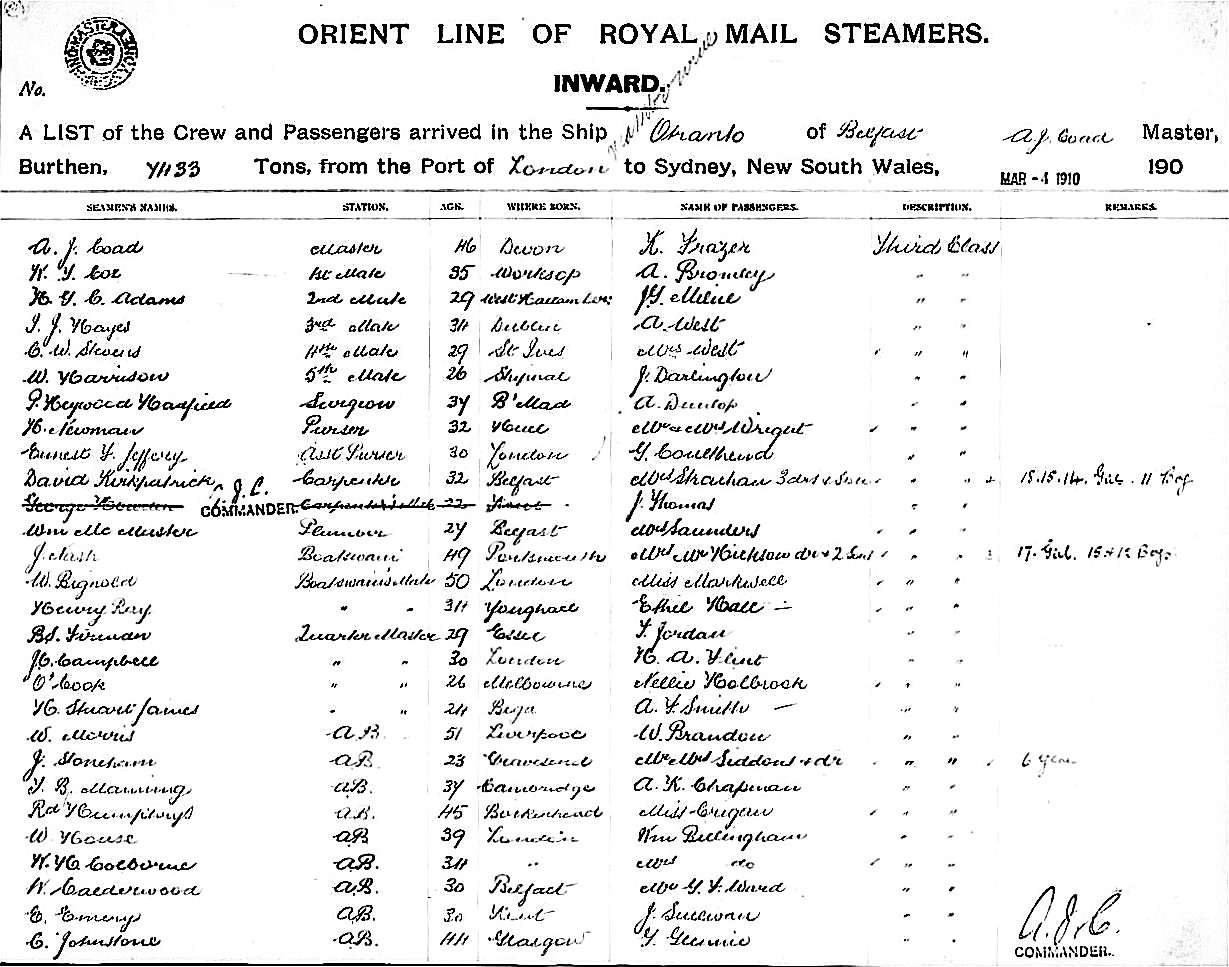 ORIENT LINE OF ROYAL MAIL STEAMERS.
INWARD.
No.
A LIST of the Crew and Passengers arrived in the Ship Otranto of Belfast A. J. Coad Master,
Burthen, 7433 Tons, from the Port of London to Sydney, New South Wales, MAR - 4 1910 190
SEAMEN'S NAMES. STATION. AGE. WHERE BORN. NAME OF PASSENGERS. DESCRIPTION. REMARKS.
A. J. Coad Master 46 Devon K. Frazer Third Class
W. F. Cox 1st Mate 35 Worksop A. Bromley " "
H. G. C. Adams 2nd Mate 29 West Hallam J. G. Milne " "
J. J. Hayes 3rd Mate 34 Dublin A. West " "
C. W. Stevens 4th Mate 29 St Ives Mrs West " "
W. Harrison 5th Mate 26 Shifnal J. Darlington " "
P. Heywood Hadfield Surgeon 37 B'Mead A. Dunlop " "
H. Newman Purser 32 Hull Mr & Mrs Wright " "
Ernest F. Jeffery Asst Purser 30 London G. Coulthend " "
David Kirkpatrick Carpenter 32 Belfast Mrs Strachan 3 drs & Son " " 4 18.15.14. Girl. 11 Boy
George Carpenter's Mate 22 A. J. C. COMMANDER. J. Thomas " "
Wm McMaster Plumber 27 Belfast Mrs Saunders " "
J. Nash Boatswain 49 Portsmouth Mrs Mr Hickson dr & 2 Sons " " 3 17. Girl. 15 & 12 Boys
W. Bignold Boatswain's Mate 50 London Miss Markwell " "
Henry Ray " " 34 Youghall Ethel Hall — " "
B. S. Firman Quarter Master 29 Essex F. Jordan " "
J. C. Campbell " " 30 London H. A. Flint " "
O' Cook " " 26 Melbourne Nellie Holbrook " "
H. Stuart James " " 24 Bega A. F. Smith — " "
W. Morris A.B. 51 Liverpool W. Brandon " "
J. Stoneham A.B. 23 Gravesend Mr Mrs Siddons & dr " " 6 year
F. B. Manning A.B. 37 Cambridge A. K. Chapman " "
Rd Humphrys A.B. 45 Birkenhead Miss Crigan " "
W. House A.B. 39 London Wm Billingham " "
W. H. Colborne A.B. 34 " Mrs do " "
W. Calderwood A.B. 30 Belfast Mr G. F. Ward " "
E. Emery A.B. 30 Kent J. Sullivan " "
C. Johnstone A.B. 44 Glasgow G. Glennie " "
A. J. C.
COMMANDER.